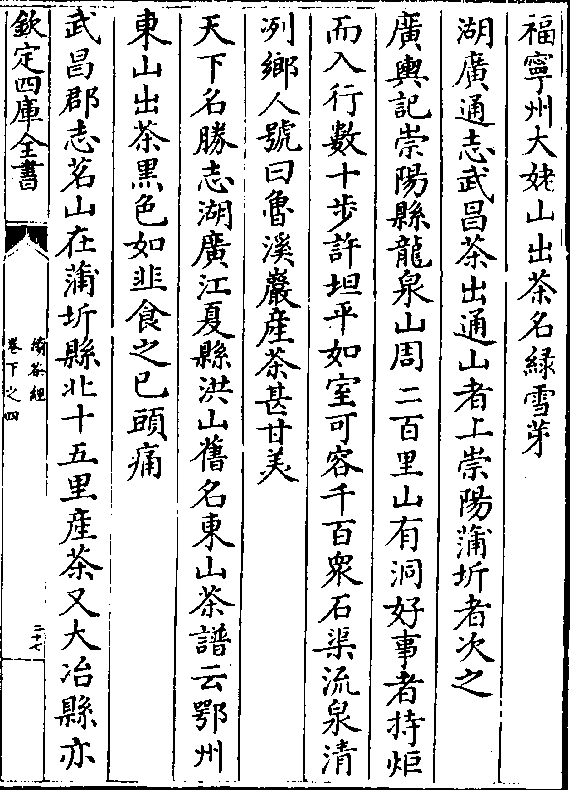 福寧州大姥山出茶名緑雪芽
湖廣通志武昌茶出通山者上崇陽蒲圻者次之
廣輿記崇陽縣龍泉山周二百里山有洞好事者持炬
而入行數十步許坦平如室可容千百衆石渠流泉清
冽鄉人號曰魯溪巖産茶甚甘美
天下名勝志湖廣江夏縣洪山舊名東山茶譜云鄂州
東山出茶黑色如韭食之已頭痛
武昌郡志茗山在蒲圻縣北十五里産茶又大冶縣亦
欽定四庫全書
續茶經
卷下之四
二十七